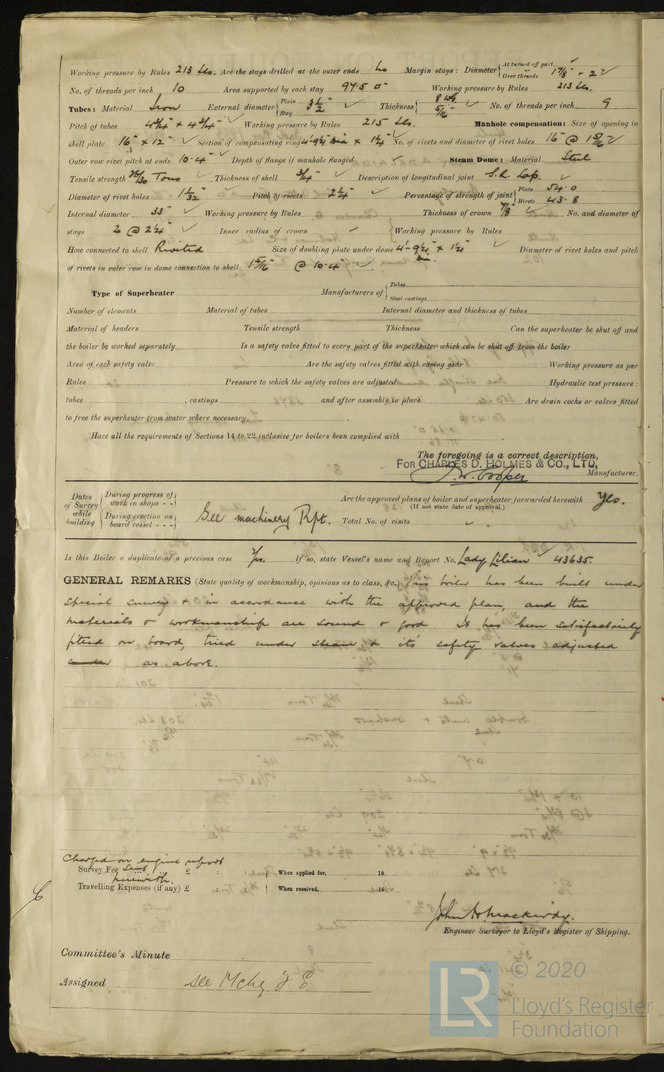 Working pressure by Rules 213 Lbs. Are the stays drilled at the outer ends No Margin stays: Diameter { At turned off part, Over threads 1 7/8" - 2"
No. of threads per inch 10 Area supported by each stay 94.5 □" Working pressure by Rules 213 Lbs.
Tubes: Material Iron External diameter { Plain Stay 3 1/2" Thickness { 8 WG 5/16" No. of threads per inch 9
Pitch of tubes 4 3/4" × 4 3/4" Working pressure by Rules 215 Lbs. Manhole compensation: Size of opening in
shell plate 16" × 12" Section of compensating ring 4'-9 1/2" Dia × 1 1/4" No. of rivets and diameter of rivet holes 16 @ 1 5/16"
Outer row rivet pitch at ends 10.4" Depth of flange if manhole flanged Steam Dome: Material Steel
Tensile strength 26/30 Tons Thickness of shell 3/4" Description of longitudinal joint S.R. Lap.
Diameter of rivet holes 1 1/32" Pitch of rivets 2 1/4" Percentage of strength of joint { Plate 54.0 Rivets 43.8
Internal diameter 33" Working pressure by Rules Thickness of crown 7/8" No. and diameter of
stays 2 @ 2 1/4" Inner radius of crown Working pressure by Rules
How connected to shell Riveted Size of doubling plate under dome 4'-9 1/2" × 1 1/4" Dia. Diameter of rivet holes and pitch
of rivets in outer row in dome connection to shell 1 5/16" @ 10.4"
Type of Superheater Manufacturers of { Tubes Steel castings
Number of elements Material of tubes Internal diameter and thickness of tubes
Material of headers Tensile strength Thickness Can the superheater be shut off and
the boiler be worked separately Is a safety valve fitted to every part of the superheater which can be shut off from the boiler
Area of each safety valve Are the safety valves fitted with easing gear Working pressure as per
Rules Pressure to which the safety valves are adjusted Hydraulic test pressure:
tubes , castings and after assembly in place Are drain cocks or valves fitted
to free the superheater from water where necessary.
Have all the requirements of Sections 14 to 22 inclusive for boilers been complied with
The foregoing is a correct description,
FOR CHARLES D. HOLMES & CO., LTD,
Cooper Manufacturer.
Dates of Survey while building { During progress of work in shops - - During erection on board vessel - - - } See machinery Rpt.
Are the approved plans of boiler and superheater forwarded herewith Yes.
(If not state date of approval.)
Total No. of visits
Is this Boiler a duplicate of a previous case Yes. If so, state Vessel's name and Report No. Lady Lilian 43635.
GENERAL REMARKS (State quality of workmanship, opinions as to class, &c.) This boiler has been built under
special survey & in accordance with the approved plan, and the
materials & workmanship are sound & good. It has been satisfactorily
fitted on board, tried under steam & its safety valves adjusted
under as above.
Charged on engine report
Survey Fee £ : : } When applied for, 19
herewith.
Travelling Expenses (if any) £ : : } When received, 19
John H. Mackirdy.
Engineer Surveyor to Lloyd's Register of Shipping.
Committee's Minute
Assigned See Mchy J. E.
LR © 2020
Lloyd's Register
Foundation